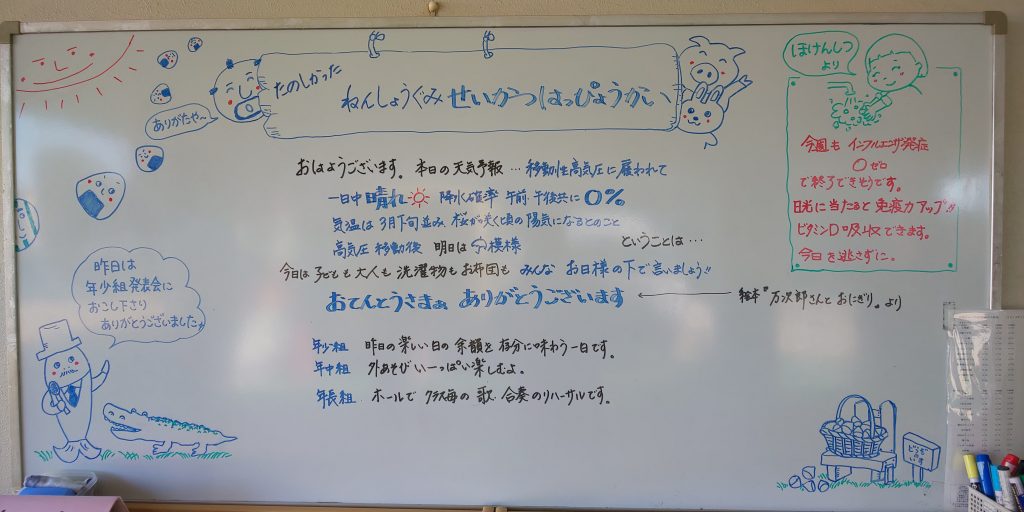 たのしかった
ねんしょうぐみ せいかつはっぴょうかい
ありがたや〜
ほけんしつ
より
おはようございます。本日の天気予報…移動性高気圧に雇われて
一日中 晴れ 降水確率 午前・午後共に 0%
気温は3月下旬並み、桜が咲く頃の陽気になるとのこと
高気圧 移動後 明日は 模様 ということは…
今日は 子ども も 大人も 洗濯物も お布団も みんな お日様の下で言いましょう!!
おてんとうさまぁ ありがとうございます
絵本"万次郎さんと おにぎり"より
今週も インフルエンザ発症
0ゼロ
で終了できそうです。
日光に当たると 免疫力アップ!!
ビタミンD吸収できます。
今日を逃さずに。
昨日は
年少組発表会に
おこし下さり
ありがとうございました
年少組 昨日の楽しい日の余韻を存分に味わう一日です。
年中組 外あそびい一っぱい楽しむよ。
年長組 ホールで クラス毎の 歌・合奏のリハーサルです。